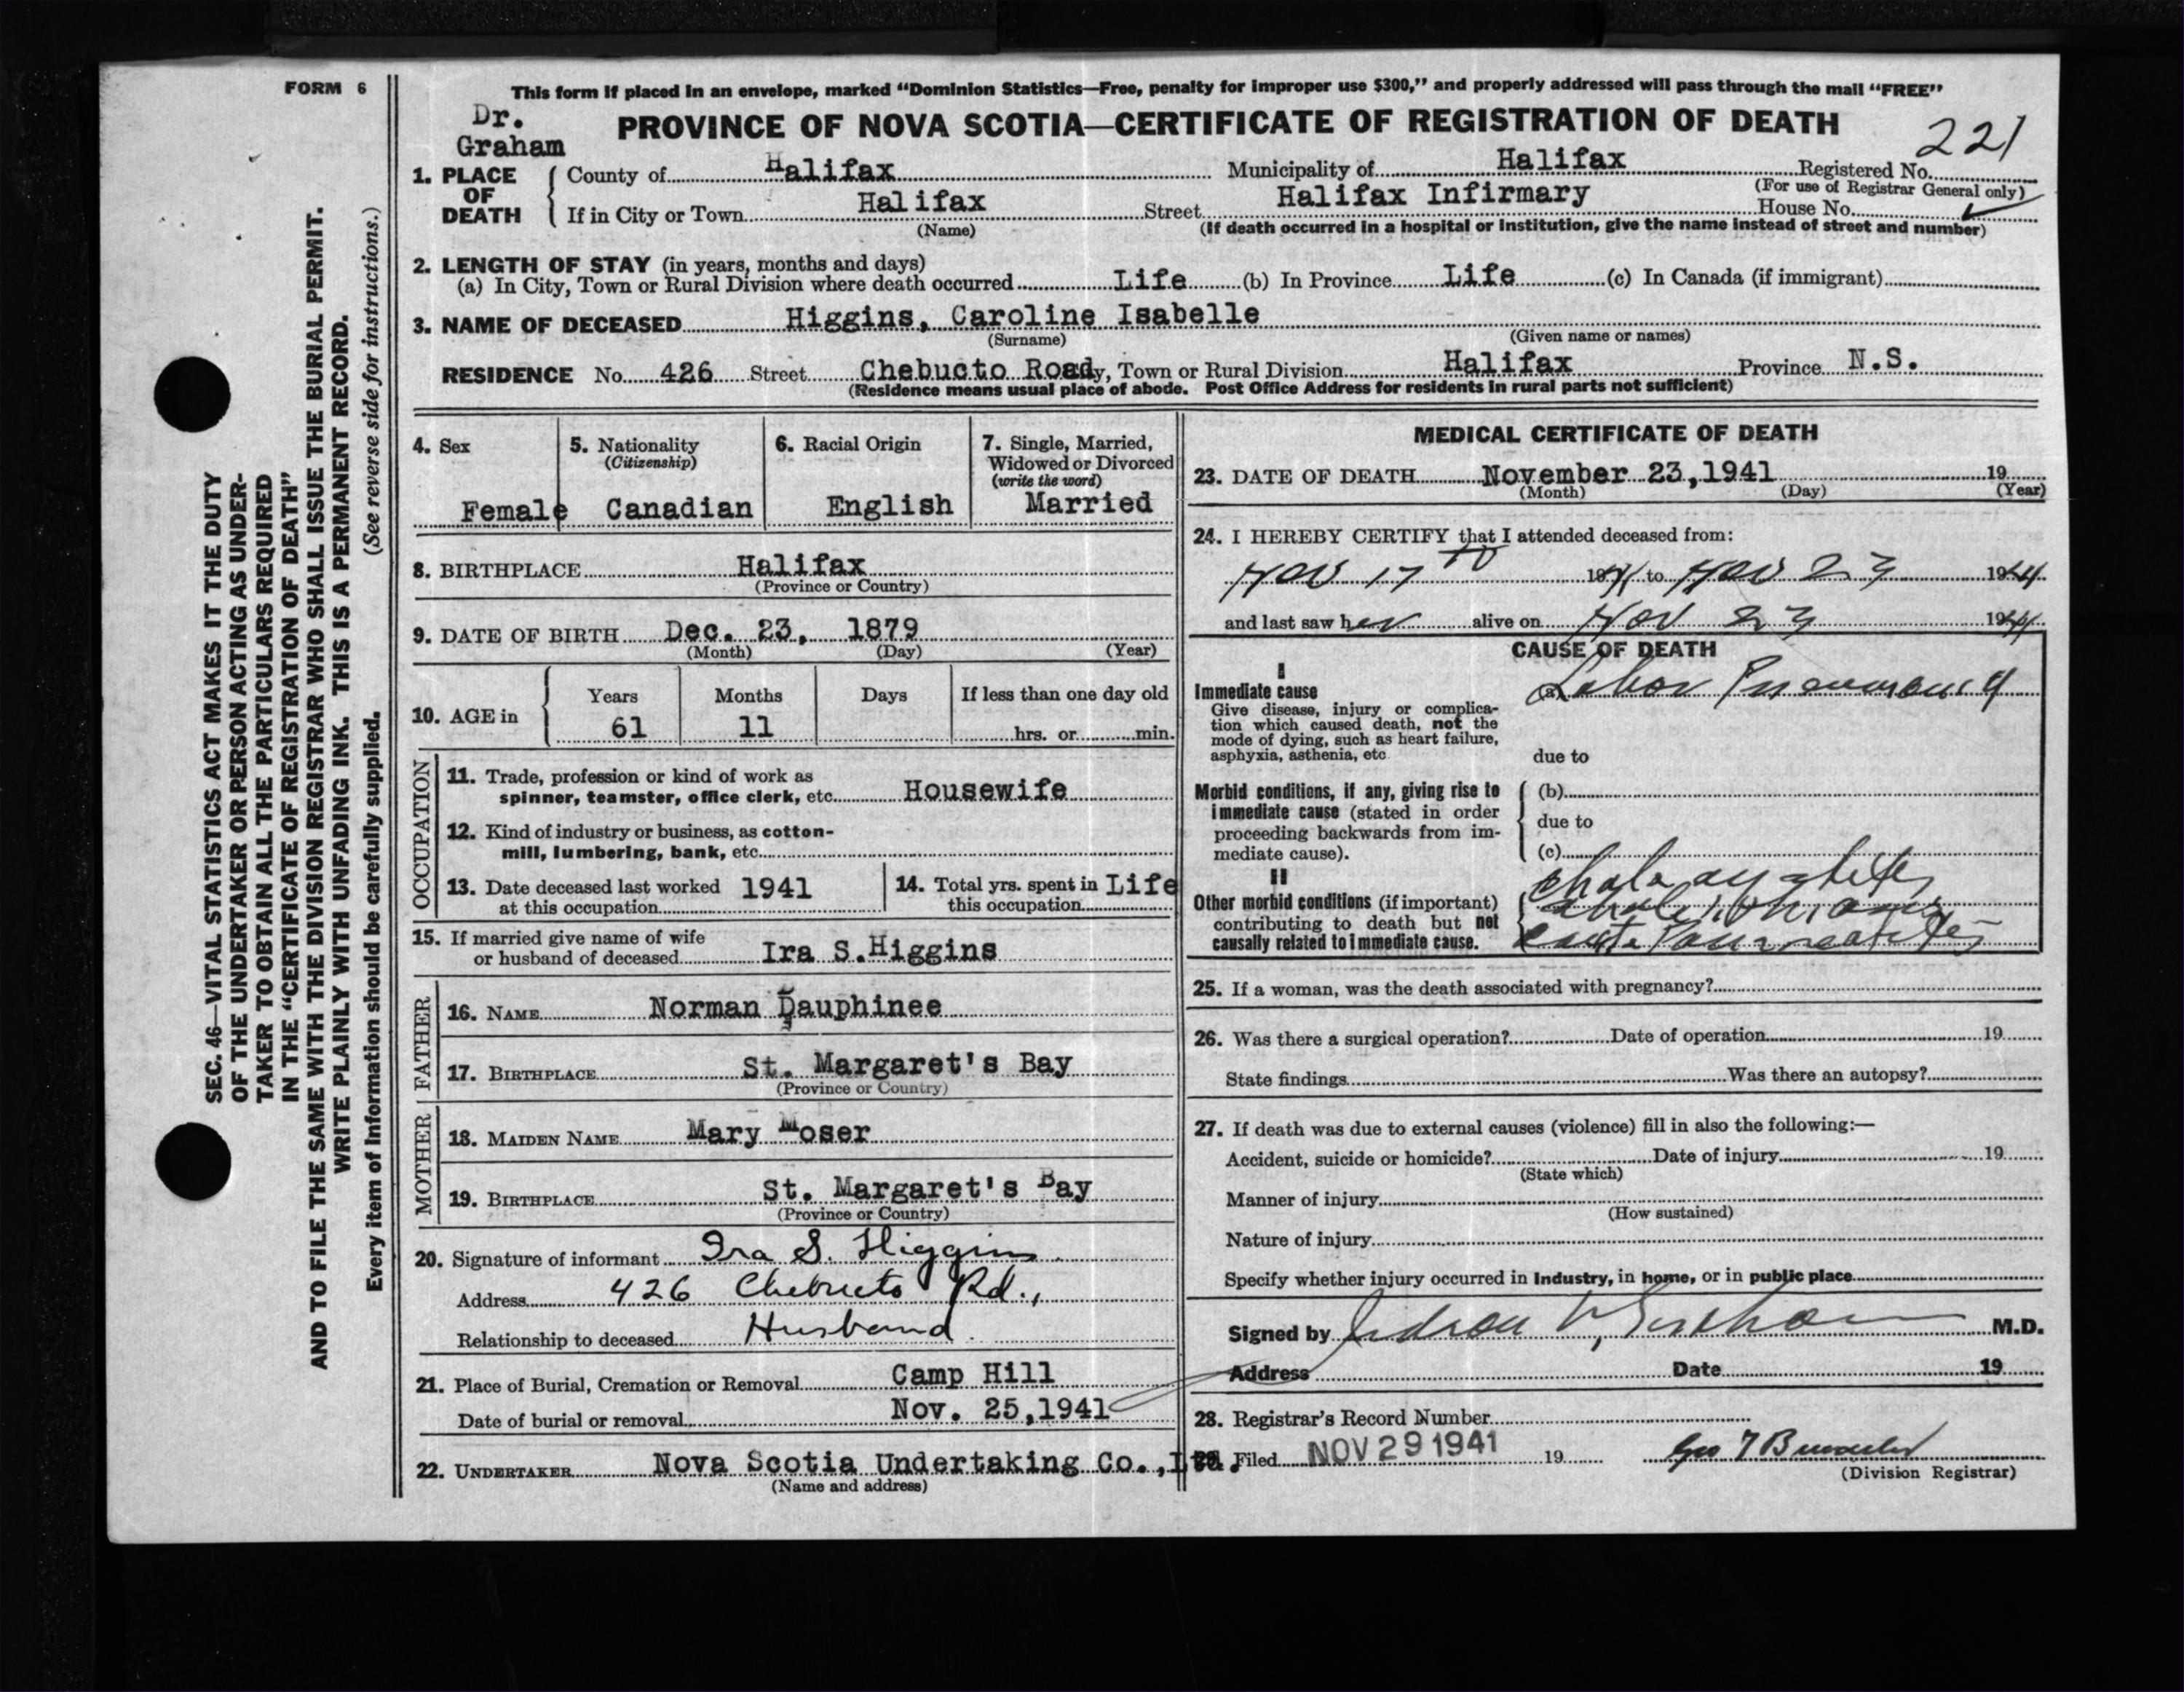 FORM 6
This form if placed in an envelope, marked “Dominion Statistics—Free, penalty for improper use $300,” and properly addressed will pass through the mail “FREE”
Dr.
Graham
PROVINCE OF NOVA SCOTIA—CERTIFICATE OF REGISTRATION OF DEATH
221
1. PLACE OF DEATH
County of Halifax Municipality of Halifax Registered No.
(For use of Registrar General only)
If in City or Town Halifax Street Halifax Infirmary House No. ✓
(Name) (If death occurred in a hospital or institution, give the name instead of street and number)
2. LENGTH OF STAY (in years, months and days)
(a) In City, Town or Rural Division where death occurred Life (b) In Province Life (c) In Canada (if immigrant)
3. NAME OF DECEASED Higgins, Caroline Isabelle
(Surname) (Given name or names)
RESIDENCE No. 426 Street Chebucto Road y, Town or Rural Division Halifax Province N.S.
(Residence means usual place of abode. Post Office Address for residents in rural parts not sufficient)
4. Sex
Female
5. Nationality
(Citizenship)
Canadian
6. Racial Origin
English
7. Single, Married,
Widowed or Divorced
(write the word)
Married
8. BIRTHPLACE Halifax
(Province or Country)
9. DATE OF BIRTH Dec. 23, 1879
(Month) (Day) (Year)
10. AGE in
Years Months Days If less than one day old
61 11 hrs. or min.
OCCUPATION
11. Trade, profession or kind of work as
spinner, teamster, office clerk, etc. Housewife
12. Kind of industry or business, as cotton-
mill, lumbering, bank, etc.
13. Date deceased last worked 1941
at this occupation
14. Total yrs. spent in Life
this occupation
15. If married give name of wife
or husband of deceased Ira S. Higgins
FATHER
16. NAME Norman Dauphinee
17. BIRTHPLACE St. Margaret's Bay
(Province or Country)
MOTHER
18. MAIDEN NAME Mary Moser
19. BIRTHPLACE St. Margaret's Bay
(Province or Country)
20. Signature of informant Ira S. Higgins
Address 426 Chebucto Rd.,
Relationship to deceased Husband
21. Place of Burial, Cremation or Removal Camp Hill
Date of burial or removal Nov. 25, 1941
22. UNDERTAKER Nova Scotia Undertaking Co., Ltd.
(Name and address)
MEDICAL CERTIFICATE OF DEATH
23. DATE OF DEATH November 23, 1941 19
(Month) (Day) (Year)
24. I HEREBY CERTIFY that I attended deceased from:
Nov 17 1941 to Nov 23 1941
and last saw her alive on Nov 23 1941
CAUSE OF DEATH
I
Immediate cause (a) Lobar Pneumonia
Give disease, injury or complica-
tion which caused death, not the
mode of dying, such as heart failure,
asphyxia, asthenia, etc
due to
Morbid conditions, if any, giving rise to
immediate cause (stated in order
proceeding backwards from im-
mediate cause).
(b)
due to
(c)
II
Other morbid conditions (if important)
contributing to death but not
causally related to immediate cause.
25. If a woman, was the death associated with pregnancy?
26. Was there a surgical operation? Date of operation 19
State findings Was there an autopsy?
27. If death was due to external causes (violence) fill in also the following:—
Accident, suicide or homicide? Date of injury 19
(State which)
Manner of injury
(How sustained)
Nature of injury
Specify whether injury occurred in industry, in home, or in public place
Signed by M.D.
Address Date 19
28. Registrar's Record Number
29. Filed NOV 29 1941 19
(Division Registrar)
SEC. 46—VITAL STATISTICS ACT MAKES IT THE DUTY
OF THE UNDERTAKER OR PERSON ACTING AS UNDER-
TAKER TO OBTAIN ALL THE PARTICULARS REQUIRED
IN THE “CERTIFICATE OF REGISTRATION OF DEATH”
AND TO FILE THE SAME WITH THE DIVISION REGISTRAR WHO SHALL ISSUE THE BURIAL PERMIT.
WRITE PLAINLY WITH UNFADING INK. THIS IS A PERMANENT RECORD.
Every item of information should be carefully supplied. (See reverse side for instructions.)